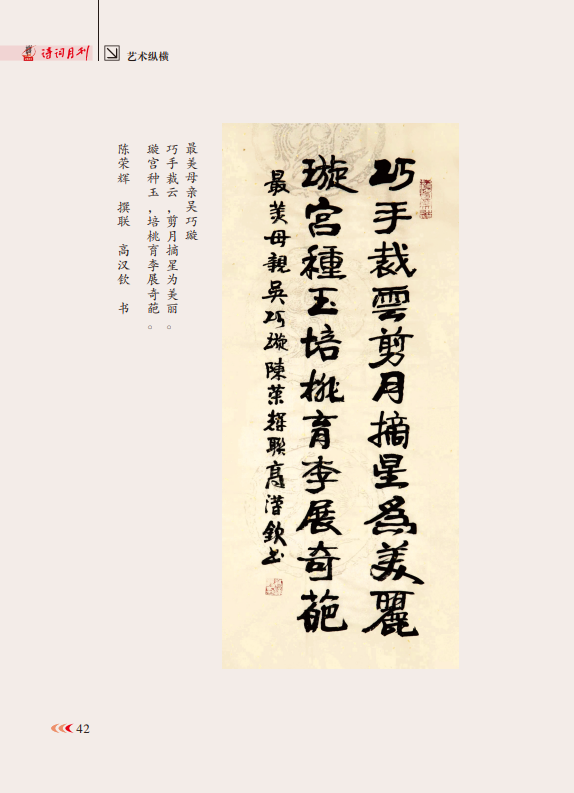 诗词月刊
艺术纵横
最美母亲吴巧璇
巧手裁云，剪月摘星为美丽。
璇宫种玉，培桃育李展奇葩。
陈荣辉 撰联 高汉钦 书
巧手裁雲剪月摘星為美麗
璇宫種玉培桃育李展奇葩
最美母親吴巧璇陳荣輝聯高漢欽书
42